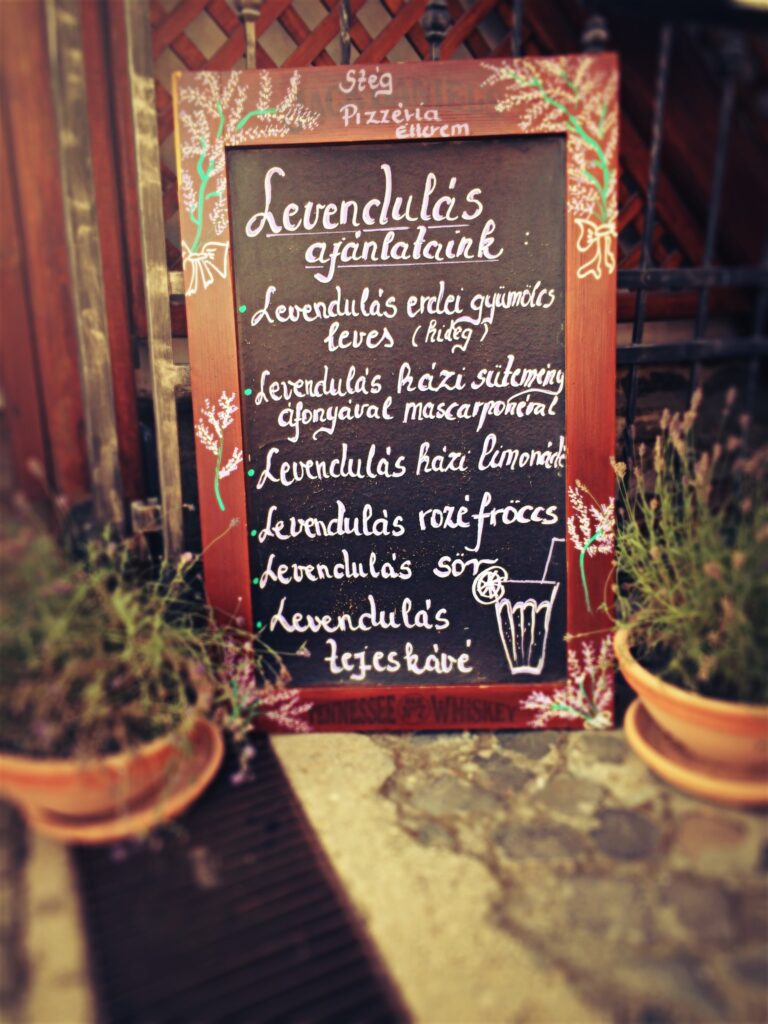 Stég
Pizzéria
Étterem
Levendulás
ajánlataink :
Levendulás erdei gyümölcs
leves (hideg)
Levendulás házi sütemény
áfonyával mascarponéval
Levendulás házi limonádé
Levendulás rozé fröccs
Levendulás sör
Levendulás
tejeskávé
TENNESSEE WHISKEY